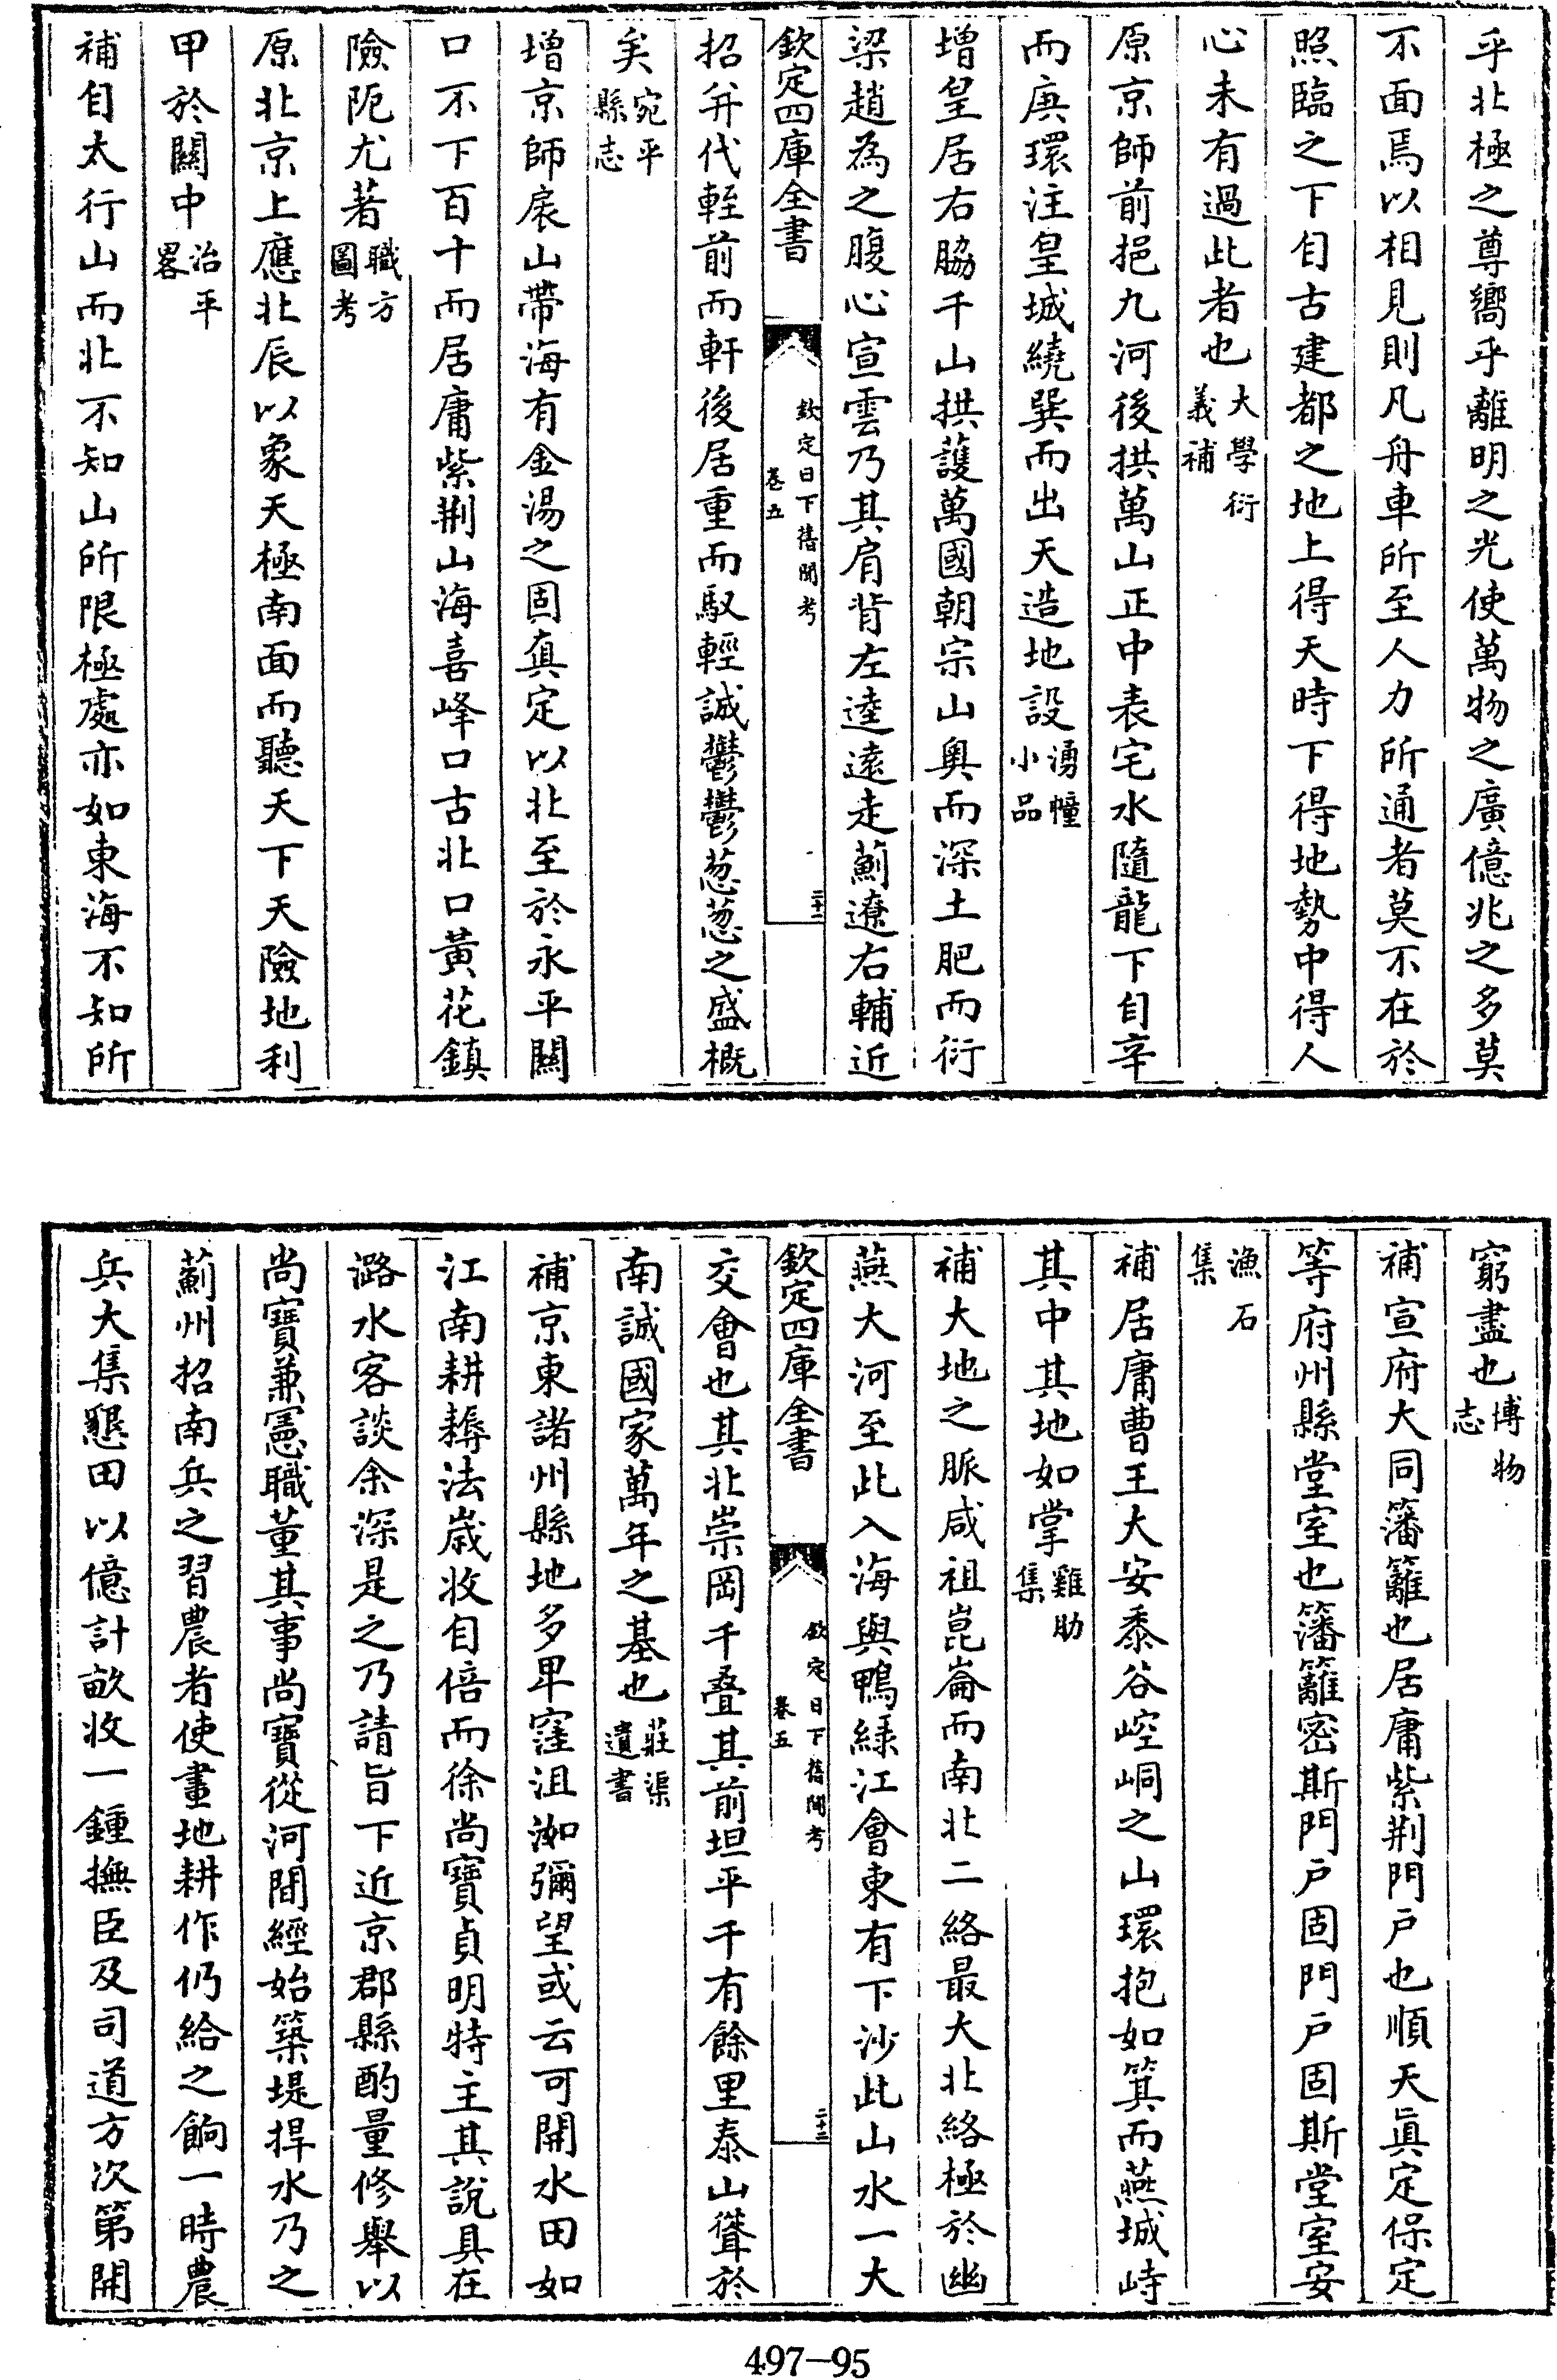 乎北極之尊嚮乎離明之光使萬物之廣億兆之多莫
不面焉以相見則凡舟車所至人力所通者莫不在於
照臨之下自古建都之地上得天時下得地勢中得人
心未有過此者也大學衍義補
原京師前挹九河後拱萬山正中表宅水隨龍下自辛
而庚環注皇城繞巽而出天造地設湧幢小品
増皇居右脇千山拱護萬國朝宗山奥而深土肥而衍
梁趙為之腹心宣雲乃其肩背左逵遠走薊遼右輔近
欽定四庫全書
欽定日下舊聞考
卷五
二十一
招并代輊前而軒後居重而馭輕誠鬱鬱葱葱之盛概
矣宛平縣志
増京師扆山帶海有金湯之固真定以北至於永平關
口不下百十而居庸紫荆山海喜峰口古北口黃花鎮
險阨尤著職方圖考
原北京上應北辰以象天極南面而聽天下天險地利
甲於關中治平畧
補自太行山而北不知山所限極處亦如東海不知所
窮盡也博物志
補宣府大同籓籬也居庸紫荆門户也順天真定保定
等府州縣堂室也籓籬密斯門户固門户固斯堂室安
漁石集
補居庸曹王大安黍谷崆峒之山環抱如箕而燕城峙
其中其地如掌雞肋集
補大地之脈咸祖崑崙而南北二絡最大北絡極於幽
燕大河至此入海與鴨緑江會東有下沙此山水一大
欽定四庫全書
欽定日下舊聞考
卷五
二十二
交會也其北崇岡千疊其前坦平千有餘里泰山聳於
南誠國家萬年之基也莊渠遺書
補京東諸州縣地多卑窪沮洳彌望或云可開水田如
江南耕耨法嵗收自倍而徐尚寶貞明特主其說具在
潞水客談余深是之乃請旨下近京郡縣酌量修舉以
尚寶兼憲職董其事尚寶從河間經始築堤捍水乃之
薊州招南兵之習農者使畫地耕作仍給之餉一時農
兵大集懇田以億計畝收一鍾撫臣及司道方次第開
497-95